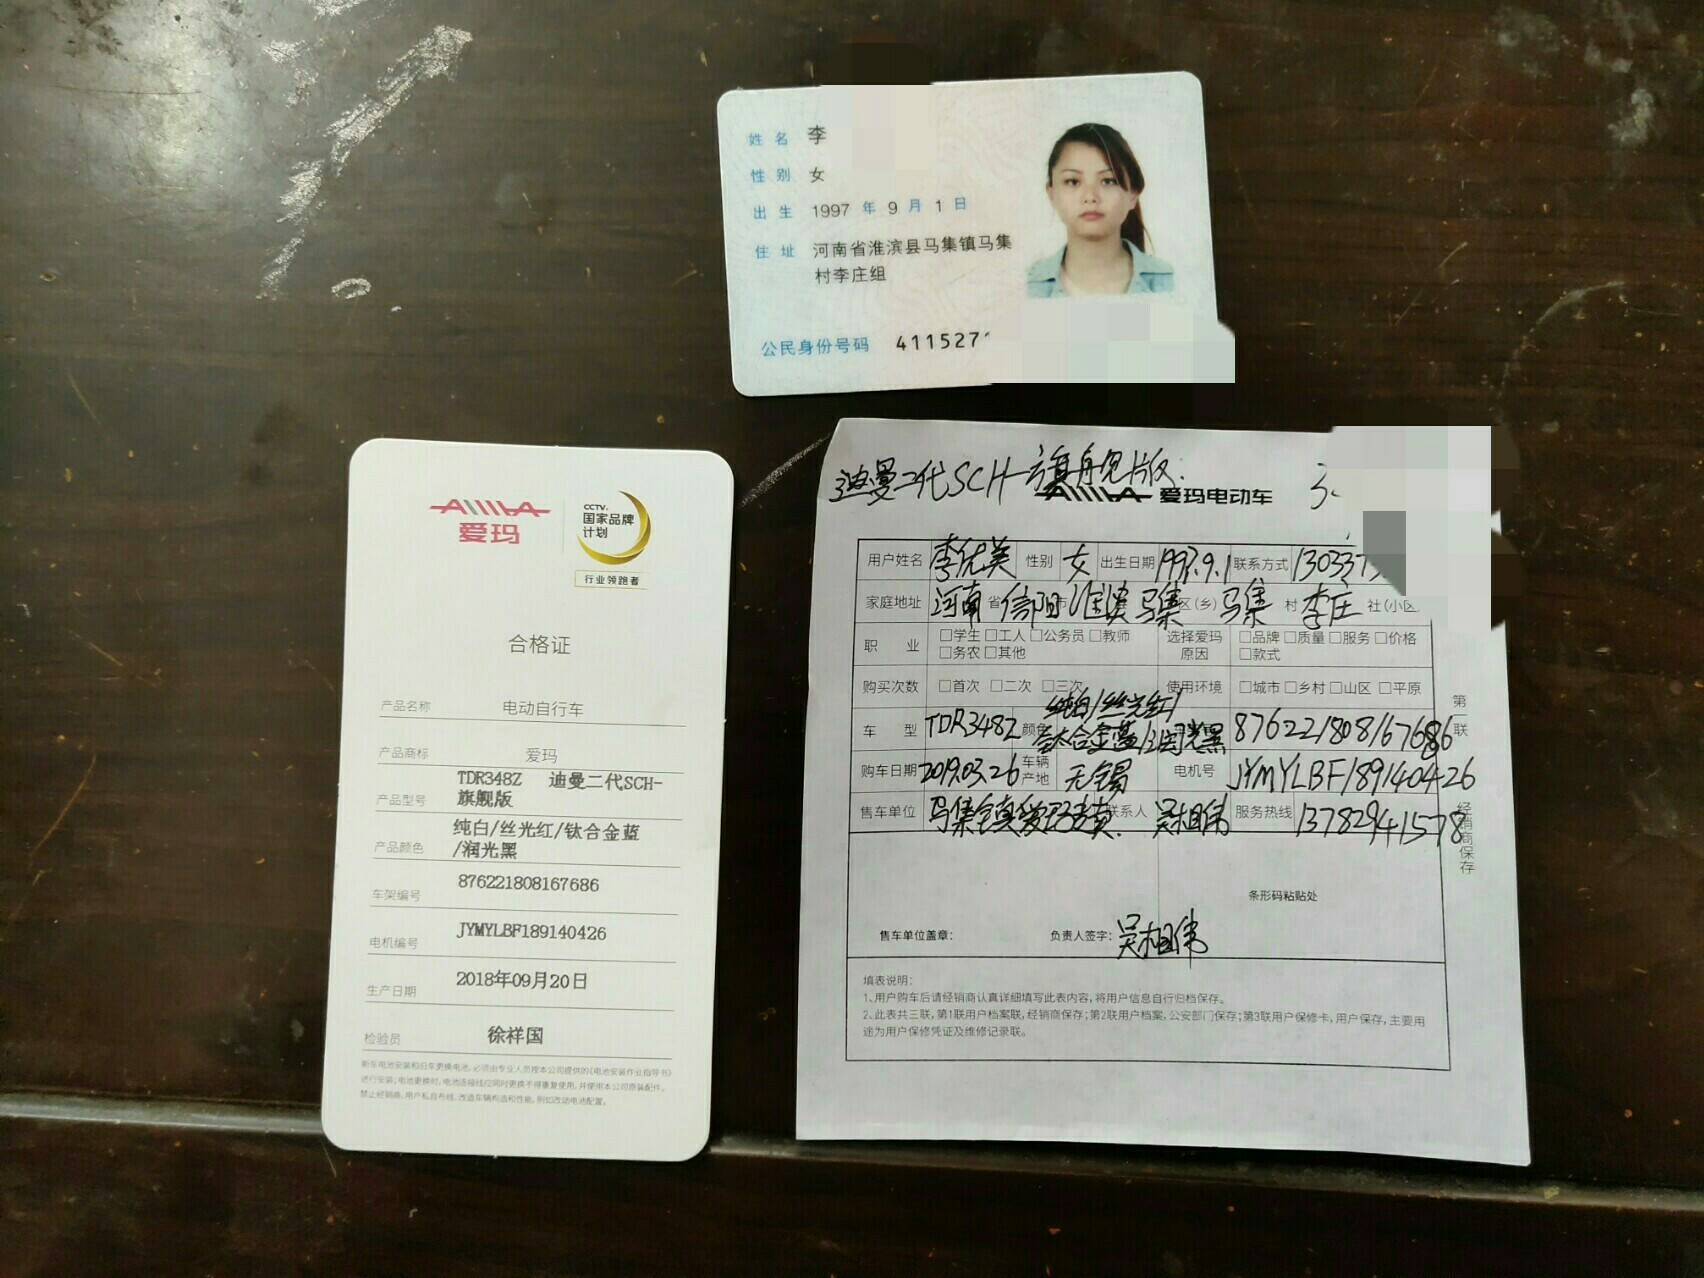 姓名 李
性别 女
出生 1997 年 9 月 1 日
住址 河南省淮滨县马集镇马集
村李庄组
公民身份号码 411527
AIMA
爱玛
CCTV.
国家品牌
计划
行业领跑者
合格证
产品名称 电动自行车
产品商标 爱玛
产品型号 TDR348Z 迪曼二代SCH-
旗舰版
产品颜色 纯白/丝光红/钛合金蓝
/润光黑
车架编号 876221808167686
电机编号 JYMYLBF189140426
生产日期 2018年09月20日
检验员 徐祥国
新车电池安装和旧车更换电池,必须由专业人员按本公司提供的《电池安装作业指导书》
进行安装;电池更换时,电池连接线应同时更换不得重复使用,并使用本公司原装配件。
禁止经销商、用户私自布线、改造车辆构造和性能,例如改动电池配置。
迪曼二代SCH-旗舰版
AIMA 爱玛电动车
用户姓名 李优美 性别 女 出生日期 1997.9.1 联系方式 130337
家庭地址 河南 省 信阳 市 淮滨 马集 区(乡) 马集 村 李庄 社(小区
职业 □学生 □工人 □公务员 □教师 选择爱玛 □品牌 □质量 □服务 □价格
□务农 □其他 原因 □款式
购买次数 □首次 □二次 □三次 使用环境 □城市 □乡村 □山区 □平原
车型 TDR348Z 颜色 纯白/丝光红/
钛合金蓝/润光黑 876221808167686
购车日期 2019.03.26 车辆
产地 无锡 电机号 JYMYLBF189140426
售车单位 马集镇爱玛专卖 联系人 吴相伟 服务热线 13782941578
条形码粘贴处
售车单位盖章: 负责人签字: 吴相伟
填表说明:
1、用户购车后请经销商认真详细填写此表内容,将用户信息自行归档保存。
2、此表共三联,第1联用户档案联,经销商保存;第2联用户档案,公安部门保存;第3联用户保修卡,用户保存,主要用
途为用户保修凭证及维修记录联。
第一联
经销商保存